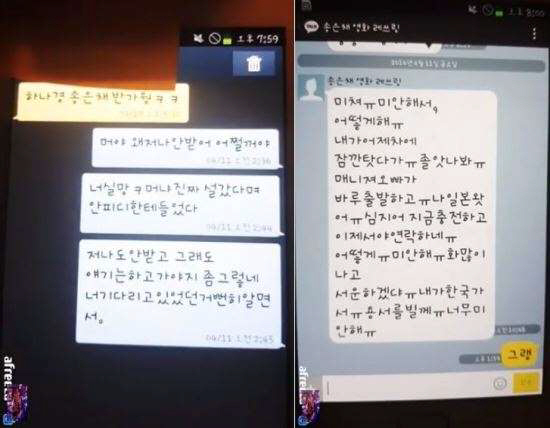 오후 7:59
하나경 송은채 반가웡ㅋㅋ
머야 왜저나안받어 어쩔꺼야
04/11 오전 2:36
너실망ㅋ머냐진짜 설갔다며
안피디한테들었다
04/11 오전 2:44
저나도안받고 그래도
얘기는하고가야지 좀그렇네
너기다리고있었던거뻔히알면
서。
04/11 오전 2:45
afree
오후 8:00
송은채 영화 레쓰링
송은채 영화 레쓰링
미쳐ㅠ미안해서,
어떻게해ㅠ
내가어제차에
잠깐탓다가ㅠ졸앗나봐ㅠ
매니져오빠가
바루출발하고ㅠ나일본왓
어ㅠ심지어 지금충전하고
이제서야연락하네ㅠ
어떻게ㅠ미안해ㅠ화많이
나고
서운하겠댜ㅠ내가한국가
서ㅠ용서를빌께ㅠ너무미
안해ㅠ
그랭
afree